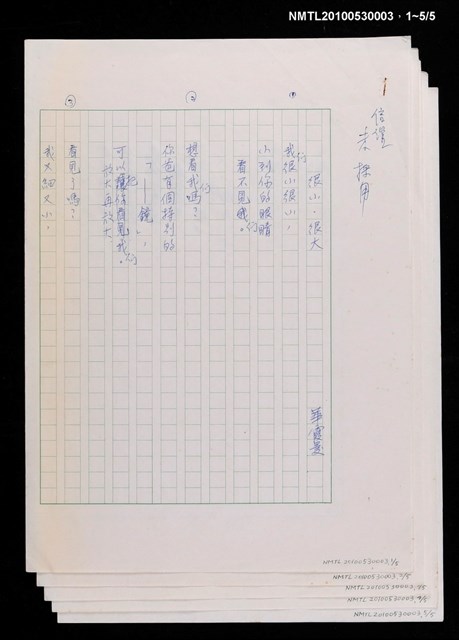 NMTL20100530003，1~5/5
信誼
未採用
很小、很大
華霞菱
①
我們很小很小，
小到你的眼睛
看不見我們。
②
想看我們嗎？
你爸有個特別的
「—鏡」，
可以把
放大再放大
③
看見了嗎？
我又細又小，
NMTL20100530003, 1/5
NMTL20100530003, 2/5
NMTL20100530003, 3/5
NMTL20100530003, 4/5
NMTL20100530003, 5/5